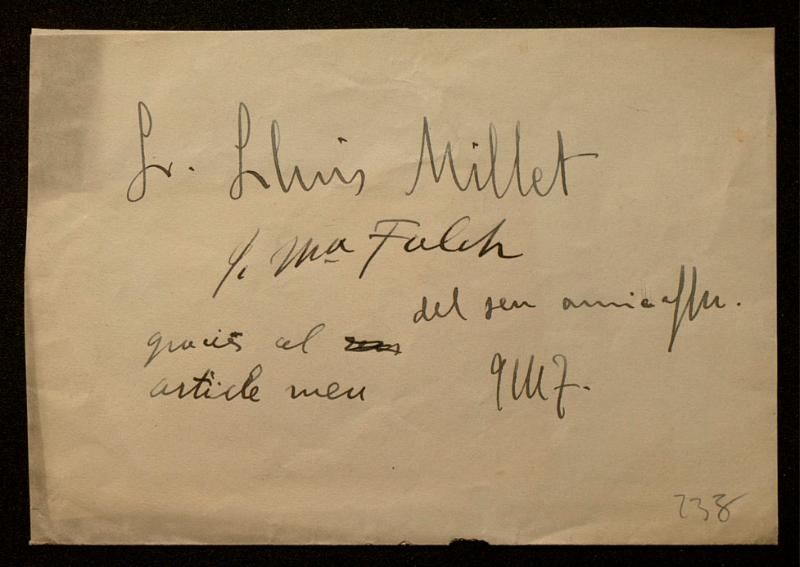 Sr. Lluis Millet
J. Mª Folch
del seu amic
gracies al
article meu
238